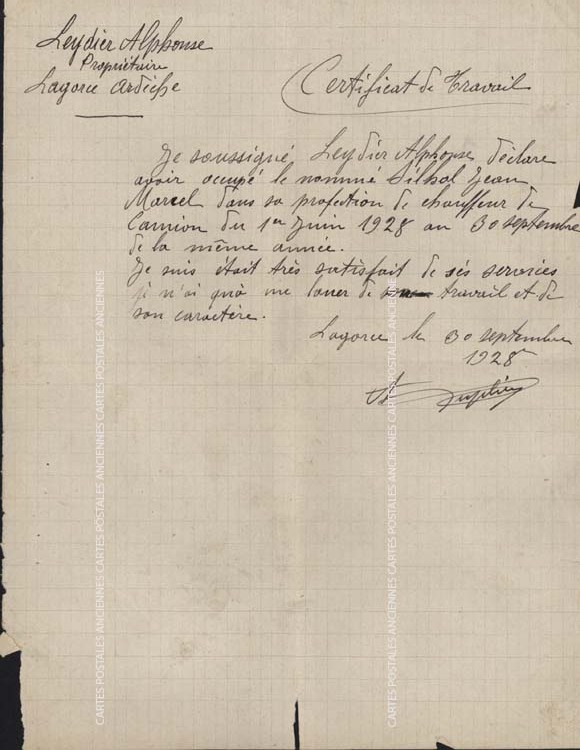 Leydier Alphonse
Propriétaire
Lagorce Ardèche
Certificat de Travail
Je soussigné, Leydier Alphonse déclare
avoir occupé le nommé Silhol Jean
Marcel dans sa profection de chauffeur de
Camion du 1er Juin 1928 au 30 septembre
de la même année.
Je suis était très satisfait de sés services
je n'ai quà me louer de travail et de
son caractère.
Lagorce le 30 septembre
1928
CARTES POSTALES ANCIENNES CARTES POSTALES ANCIENNES CARTES POSTALES ANCIENNES
CARTES POSTALES ANCIENNES CARTES POSTALES ANCIENNES CARTES POSTALES ANCIENNES